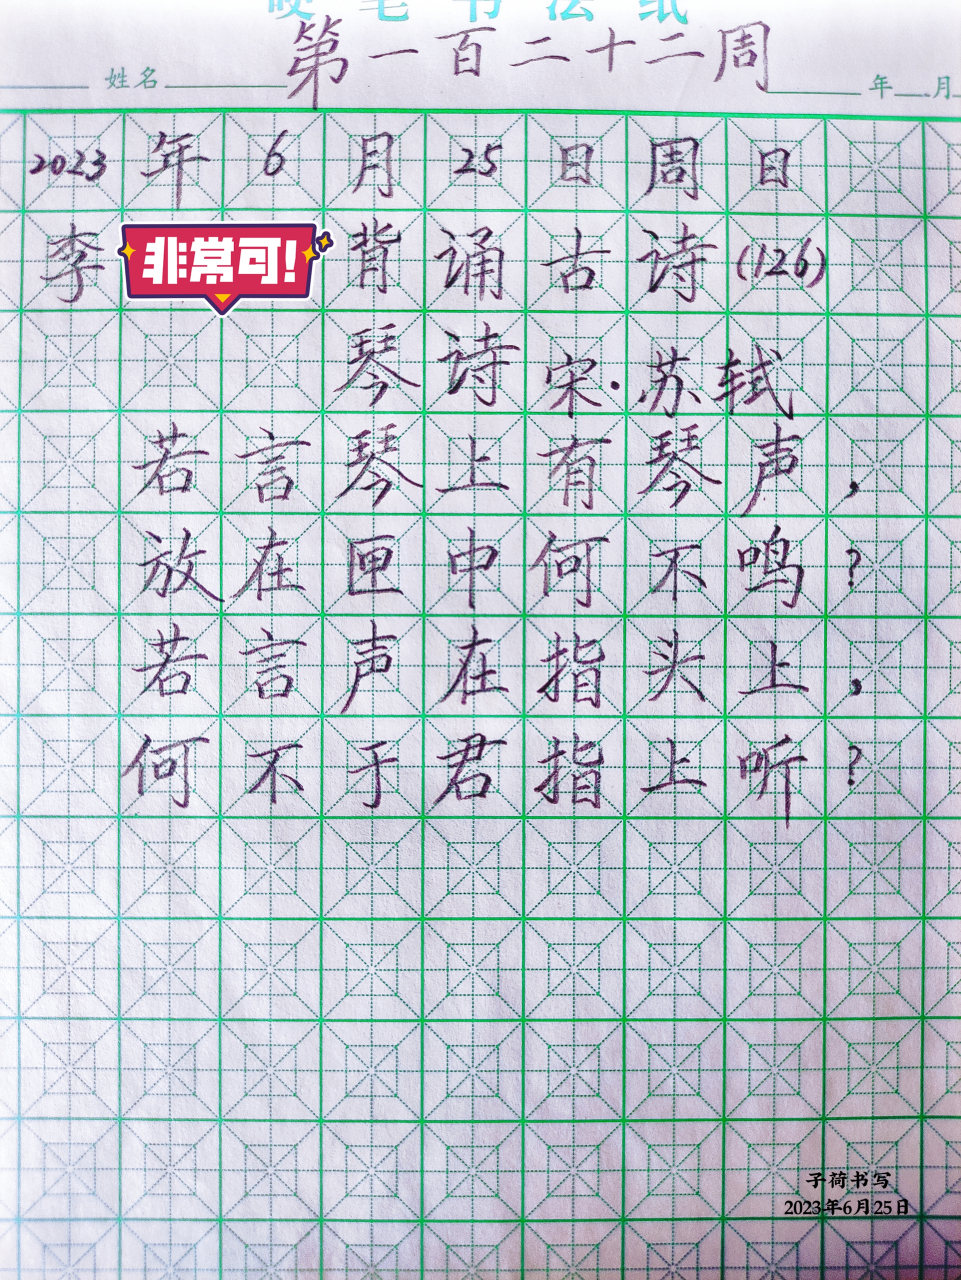 硬笔书法纸
第一百二十二周
姓名 年 月
2023年6月25日周日
李 非常可! 背诵古诗(126)
琴诗 宋·苏轼
若言琴上有琴声，
放在匣中何不鸣？
若言声在指头上，
何不于君指上听？
子荷书写
2023年6月25日